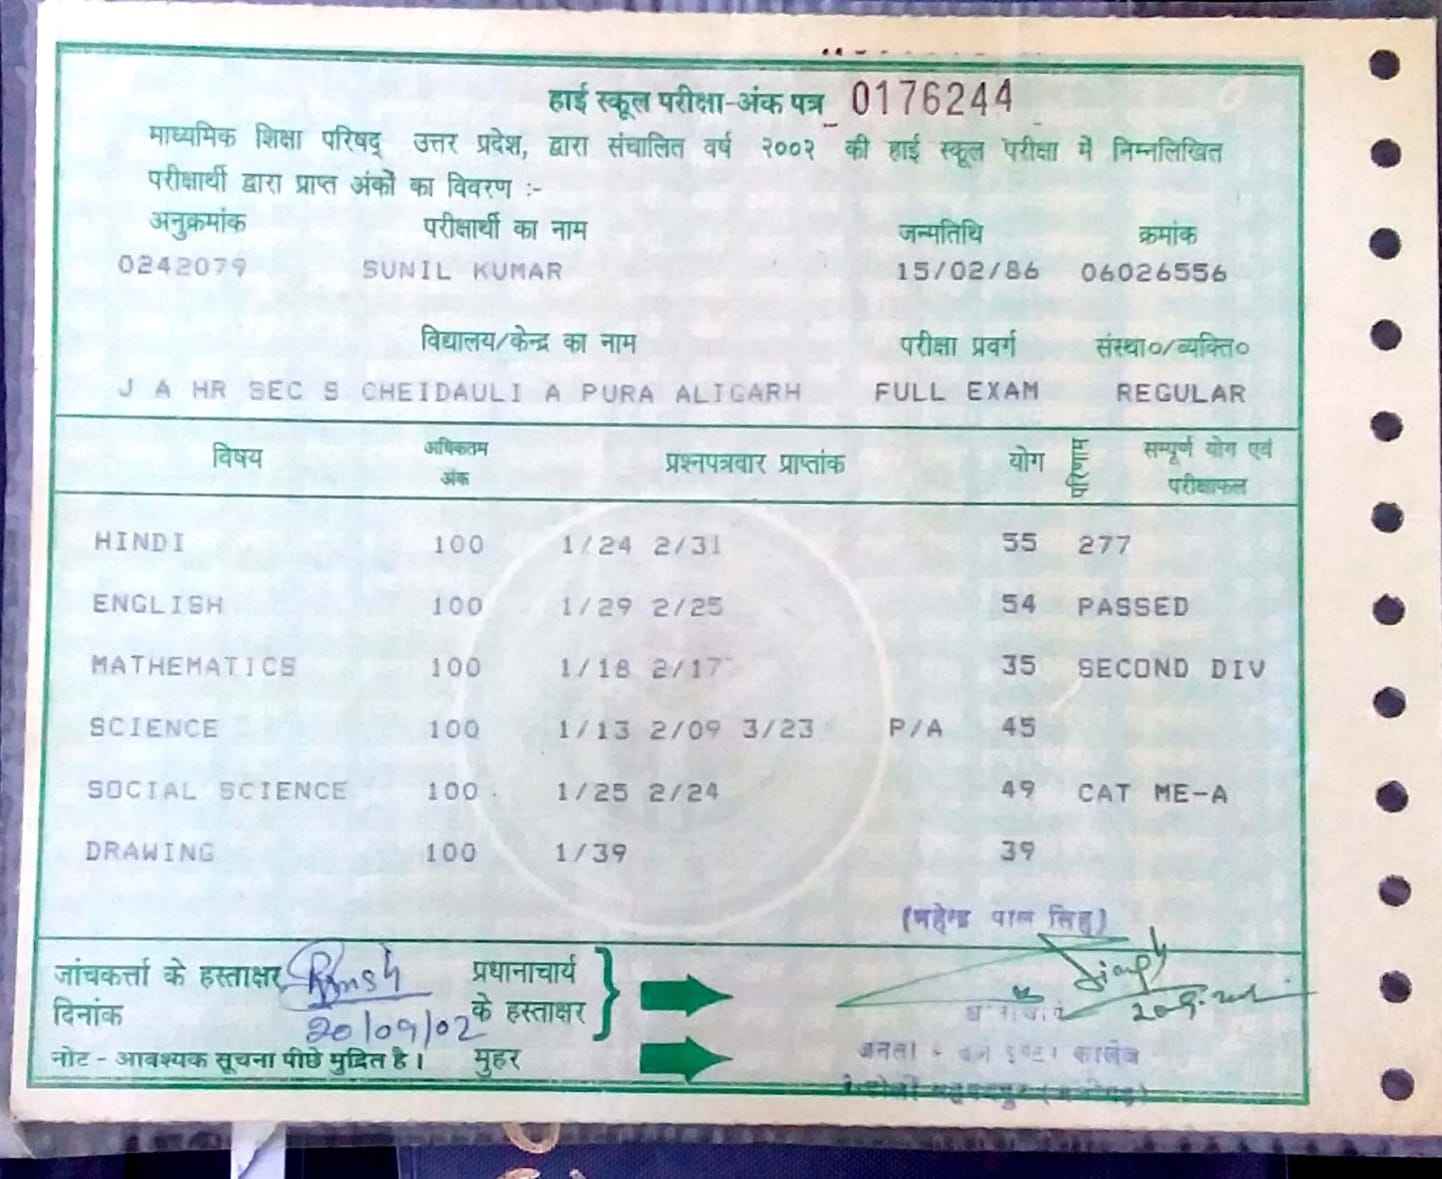 हाई स्कूल परीक्षा-अंक पत्र 0176244
माध्यमिक शिक्षा परिषद् उत्तर प्रदेश, द्वारा संचालित वर्ष २००२ की हाई स्कूल परीक्षा में निम्नलिखित
परीक्षार्थी द्वारा प्राप्त अंकों का विवरण :-
अनुक्रमांक परीक्षार्थी का नाम जन्मतिथि क्रमांक
0242079 SUNIL KUMAR 15/02/86 06026556
विद्यालय/केन्द्र का नाम परीक्षा प्रवर्ग संस्था०/व्यक्ति०
J A HR SEC S CHEIDAULI A PURA ALIGARH FULL EXAM REGULAR
विषय अधिकतम अंक प्रश्नपत्रवार प्राप्तांक योग परिणाम सम्पूर्ण योग एवं परीक्षाफल
HINDI 100 1/24 2/31 55 277
ENGLISH 100 1/29 2/25 54 PASSED
MATHEMATICS 100 1/18 2/17 35 SECOND DIV
SCIENCE 100 1/13 2/09 3/23 P/A 45
SOCIAL SCIENCE 100 1/25 2/24 49 CAT ME-A
DRAWING 100 1/39 39
(महेन्द्र पाल सिंह)
जांचकर्त्ता के हस्ताक्षर प्रधानाचार्य
दिनांक 20/09/02 के हस्ताक्षर
नोट - आवश्यक सूचना पीछे मुद्रित है। मुहर
जनता कालेज